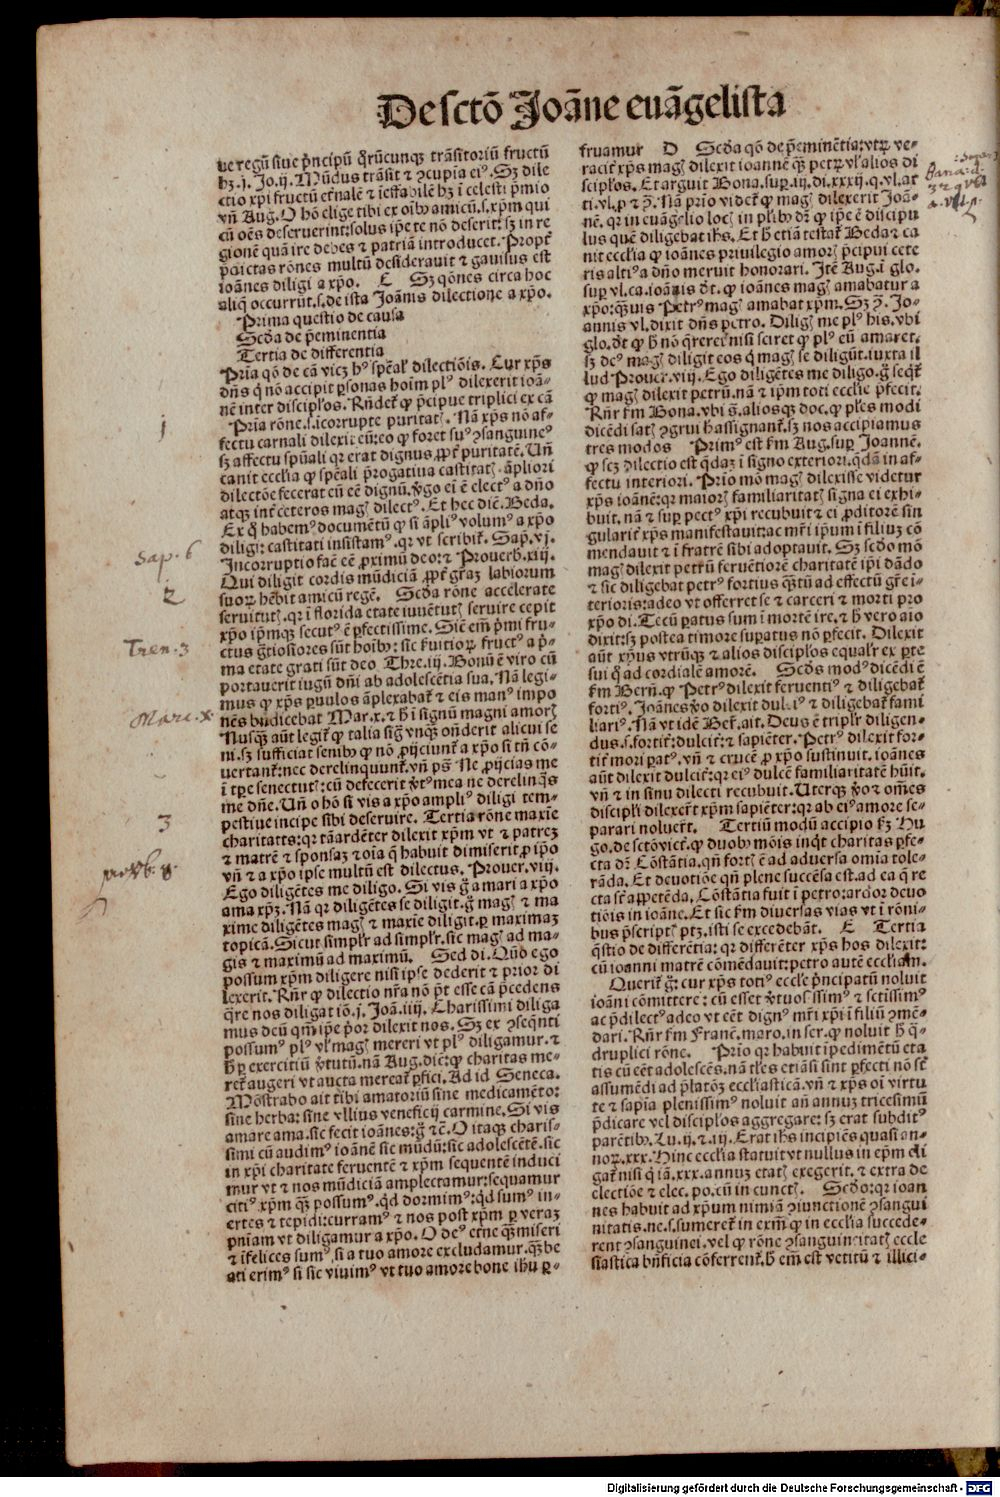 De sctō Joāne euāgelista
ue regū siue pͥncipū qͦrūcunqꝫ trāsitoriū fructū
hꝫ.j. Jo.ij. Mūdus trāsit ⁊ ꝯcupia eiꝰ. Sꝫ dile
ctio xp̄i fructū et̓nalē ⁊ ieffabilē hꝫ ī celesti p̄mio
vn̄ Aug. O hō elige tibi ex oībꝰ amicū.s.xp̄m qui
cū oēs deseruerint: solus ip̄e te nō deserit: sꝫ in re
gionē quā ire debes ⁊ patriā introducet. Propt̓
p̄dictas rōnes multū desiderauit ⁊ gauisus est
ioānes diligi a xp̄o. E Sꝫ qōnes circa hoc
aliq̄ occurrūt.s. de ista Joānis dilectione a xp̄o.
Prima questio de causa
Scd̓a de p̄eminentia
Tertia de differentia
Pria qō de cā vicꝫ hꝰ sp̄eal' dilectiōis. Cur xp̄s
dn̄s qͥ nō accipit ꝑsonas hoīm plꝰ dilexerit ioā-
nē inter discip̄los. Rn̄det̓ ꝙ p̄cipue triplici ex cā
Pria rōne.s. icorrupte puritatꝭ. Nā xp̄s nō af-
fectu carnali dilexit eū: eo ꝙ foret suꝰ ꝯsanguineꝰ
sꝫ affectu sp̄uali qꝛ erat dignus, ꝓpt̓ puritatē. Un̄
canit ecclia ꝙ sp̄eali p̄rogatiua castitatꝭ āpliori
dilectōe fecerat eū eē dignū. v̓go ei ē electꝰ a dn̄o
atqꝫ int̓ ceteros magꝭ dilectꝰ. Et hec diē. Beda.
Ex qͦ habemꝰ documētū ꝙ si āpliꝰ volumꝰ a xp̄o
diligi: castitati insistamꝰ. qꝛ vt scribit̓. Sap. vj.
Incorruptio facͥ eē ꝓximū deo: ⁊ Prouerb. xxij.
Qui diligit cordis mūdiciā, ꝓpt̓ gr̄aꝫ labiorum
suoꝝ hēbit amicū regē. Scd̓a rōne accelerate
seruitutꝭ. qꝛ ī florida etate iuuētutꝭ seruire cepit
xp̄o ip̄mqꝫ secutꝰ ē ꝑfectissime. Sic em̄ p̄mi fru-
ctus gͣtiosiores sūt hoībꝰ: sic s̓uitioꝝ fructꝰ a pͥ-
ma etate grati sūt deo Thre. iij. Bonū ē viro cū
portauerit iugū dn̄i ab adolescētia sua. Nā legi-
mus ꝙ xp̄s ꝑuulos āplexabat̓ ⁊ eis manꝰ impo
nēs bn̄dicebat Mar. x. ⁊ h̓ ī signū magni amorꝭ
Nusqꝫ aūt legit̓ ꝙ talia sigͣ vnqꝫ on̄derit alicui se
ni. sꝫ sufficiat senibꝰ ꝙ nō ꝓijciunt̓ a xp̄o si tn̄ cō-
uertant̓: nec derelinquunt̓. vn̄ ps̄ Ne ꝓijcias me
ī tp̄e senectutꝭ: cū defecerit v̓tꝰ mea ne derelinq̄s
me dn̄e. Un̄ o hō si vis a xp̄o ampliꝰ diligi tem-
pestiue incipe sibi deseruire. Tertia rōne maxīe
charitatꝭ: qꝛ tā ardēter dilexit xp̄m vt ⁊ patreꝫ
⁊ matrē ⁊ sponsaꝫ ⁊ oīa q̄ habuit dimiserit ꝓ ip̄o
vn̄ ⁊ a xp̄o ipse multū est dilectus. Prouer. viij.
Ego diligētes me diligo. Si vis gͦ amari a xp̄o
ama xp̄ꝫ. Nā qꝛ diligētes se diligit. gͦ magꝭ ⁊ ma
xime diligētes magꝭ ⁊ maxīe diligit. ꝑ maximaꝫ
topicā. Sicut simplr̄ ad simplr̄. sic magꝭ ad ma-
gis ⁊ maximū ad maximū. Sed di. Qūo ego
possum xp̄m diligere nisi ipse dederit ⁊ prior di
lexerit. Rn̄r ꝙ dilectio nr̄a nō pōt esse cā p̄cedens
q̄re nos diligat iō.j. Joā. iiij. Charissimi diliga
mus deū qm̄ ip̄e pͥor dilexit nos. Sꝫ ex ꝯseqn̄ti
possumꝰ plꝰ vl' magꝭ mereri vt plꝰ diligamur. ⁊
h̓ ꝑ exercitiū v̓tutū. nā Aug. dic̓: ꝙ charitas me-
ret̓ augeri vt aucta mereat̓ ꝑfici. Ad id Seneca.
Mōstrabo ait tibi amatoriū sine medicamēto:
sine herba: sine vllius veneficij carmine. Si vis
amare ama. sic fecit ioānes: gͦ ⁊c̄. O itaqꝫ charis-
simi cū audimꝰ ioānē sic mūdū: sic adolescētē. sic
in xp̄i charitate feruentē ⁊ xp̄m sequentē induci
mur vt ⁊ nos mūdiciā amplectamur: sequamur
citiꝰ xp̄m qꝫ possumꝰ. qͥd dormimꝰ: qͥd sumꝰ in-
ertes ⁊ tepidi: curramꝰ ⁊ nos post xp̄m ꝑ veraꝫ
pn̄iam vt diligamur a xp̄o. O deꝰ et̓ne qꝫ miseri
⁊ īfelices sumꝰ, si a tuo amore excludamur. qꝫ be
ati erimꝰ si sic viuimꝰ vt tuo amore bone ihu ꝑ-
fruamur D Scd̓a qō de p̄eminētia: vtꝝ ve-
racit̓ xp̄s magꝭ dilexit ioannē qꝫ petꝝ vl' alios di
scip̄los. Et arguit Bona. suꝑ. iij. di. xxxij. q. vl. ar
ti. vl. ꝓ ⁊ ꝯ̄. Nā prīo videt̓ ꝙ magꝭ dilexerit Joā-
nē. qꝛ in euāgelio locꝭ in pl'ibꝰ dr̄ ꝙ ip̄e ē discipu
lus quē diligebat ihs̄. Et h̓ etiā testat̓ Beda ⁊ ca
nit ecclia ꝙ ioānes priuilegio amorꝭ p̄cipui cete
ris altiꝰ a dn̄o meruit honorari. Itē Aug. ī glo.
suꝑ vl. ca. ioānis dt̄. ꝙ ioānes magꝭ amabatur a
xp̄o: qꝫuis Petrꝰ magꝭ amabat xp̄m. Sꝫ ꝯ̄. Jo-
annis vl. dixit dn̄s petro. Diligꝭ me plꝰ his. vbi
glo. dt̄ ꝙ h̓ nō q̄reret̓ nisi sciret ꝙ plꝰ eū amaret.
sꝫ deꝰ magꝭ diligit eos qͥ magꝭ se diligūt. iuxta il
lud Prouer. viij. Ego diligētes me diligo. gͦ seqͥt̓
ꝙ magꝭ dilexit petrū. nā ⁊ ip̄m toti ecclie p̄fecit.
Rn̄r fm̄ Bona. vbi s̄. aliosqꝫ doc. ꝙ pl'es modi
dicēdi satꝭ ꝯgrui h̓ assignant̓. sꝫ nos accipiamus
tres modos Primꝰ est fm̄ Aug. suꝑ Joannē.
ꝙ scꝫ dilectio est q̄daꝫ ī signo exteriori. q̄dā in af-
fectu interiori. Prīo mō magꝭ dilexisse videtur
xp̄s ioānē: qꝛ maiorꝭ familiaritatꝭ signa ei exhi-
buit. nā ⁊ suꝑ pectꝰ xp̄i recubuit ⁊ ei ꝓditorē sin
gularit̓ xp̄s manifestauit: ac mr̄i ip̄um ī filiuꝫ cō
mendauit ⁊ ī fratrē sibi adoptauit. Sꝫ sc̄do mō
magꝭ dilexit petrū feruētiorē charitatē ip̄i dādo
⁊ sic diligebat petrꝰ fortius qꝫtū ad effectū gr̄e i-
terioris: adeo vt offerret se ⁊ carceri ⁊ morti pro
xp̄o di. Tecū paratus sum ī mortē ire. ⁊ h̓ vero aīo
dixit: sꝫ postea timore suꝑatus nō ꝑfecit. Dilexit
aūt xp̄us vtrūqꝫ ⁊ alios discip̄los equalr̄ ex ꝑte
sui qͦ ad cordialē amorē. Scd̓s modꝰ dicēdi ē
fm̄ Bern̄. ꝙ Petrꝰ dilexit feruentiꝰ ⁊ diligebat̓
fortiꝰ. Joānes v̓o dilexit dulciꝰ ⁊ diligebat̓ fami
liariꝰ. Nā vt idē Ber̄. ait. Deus ē triplr̄ diligen-
dus.s. fortit̓: dulcit̓: ⁊ sapiēter. Petrꝰ dilexit for-
tit̓ mori ꝑatꝰ. vn̄ ⁊ crucē ꝓ xp̄o sustinuit. ioānes
aūt dilexit dulcit̓: qꝛ eiꝰ dulcē familiaritatē hūit.
vn̄ ⁊ in sinu dilecti recubuit. Uterqꝫ v̓o ⁊ om̄es
discip̄li dilexer̄t xp̄m sapiēter: qꝛ ab eiꝰ amore se-
parari noluer̄t. Tertiū modū accipio fꝫ Hu
go. de sctō vict̓. ꝙ duobꝰ mōis inqͥt charitas ꝑfe-
cta dr̄. Cōstātia. qn̄ fortꝭ ē ad aduersa omīa tole-
rāda. Et deuotiōe qn̄ plene succēsa est. ad ea q̄ re
cta sūt appetēda. Cōstātia fuit ī petro: ardor deuo
tiōis in ioāne. Et sic fm̄ diuersas vias vt ī rōni-
bus p̄scriptꝭ ptꝫ. isti se excedebāt. E Tertia
q̄stio de differētia: qꝛ differēter xp̄s hos dilexit:
cū ioanni matrē cōmēdauit: petro autē eccliam.
Querit̓ gͦ: cur xp̄s totiꝰ eccle p̄ncipatū noluit
ioāni cōmittere: cū esset v̓tuosissimꝰ ⁊ sctissimꝰ
ac p̄dilectꝰ adeo vt eēt dignꝰ mr̄i xp̄i ī filiū ꝯmē-
dari. Rn̄r fm̄ Franc̄. maro. in ser. ꝙ noluit h̓ q̄-
druplici rōne. Prīo qꝛ habuit īpedimētū eta
tis cū eēt adolescēs. nā tl'es etiāsi sint ꝑfecti nō sūt
assumēdi ad p̄latōꝫ eccl'iasticā. vn̄ ⁊ xp̄s oī virtu
te ⁊ sapīa plenissimꝰ noluit an̄ annuꝫ tricesimū
p̄dicare vel discip̄los aggregare: sꝫ erat subditꝰ
parētibꝰ. Lu. ij. ⁊ iij. Erat ihs̄ incipiēs quasi an-
noꝝ. xxx. Hinc ecclia statuit vt nullus in ep̄m eli
gat̓ nisi qͥ iā. xxx. annuꝫ etatꝭ exegerit. ⁊ extra de
electiōe ⁊ elec. po. cū in cunctꝭ. Scd̓o: qꝛ ioan
nes habuit ad xp̄um nimiā ꝯiunctionē ꝯsangui
nitatis. ne.s. sumeret̓ in exm̄ ꝙ in ecclia succede-
rent ꝯsanguinei. vel ꝙ rōne ꝯsanguinitatꝭ eccle
siastica bn̄ficia cōferrent̓. h̓ em̄ est vetitū ⁊ illici-
j
Sap. 6
2
Tren. 3
Marc. x
3
proub. 8.
Digitalisierung gefördert durch die Deutsche Forschungsgemeinschaft - DFG